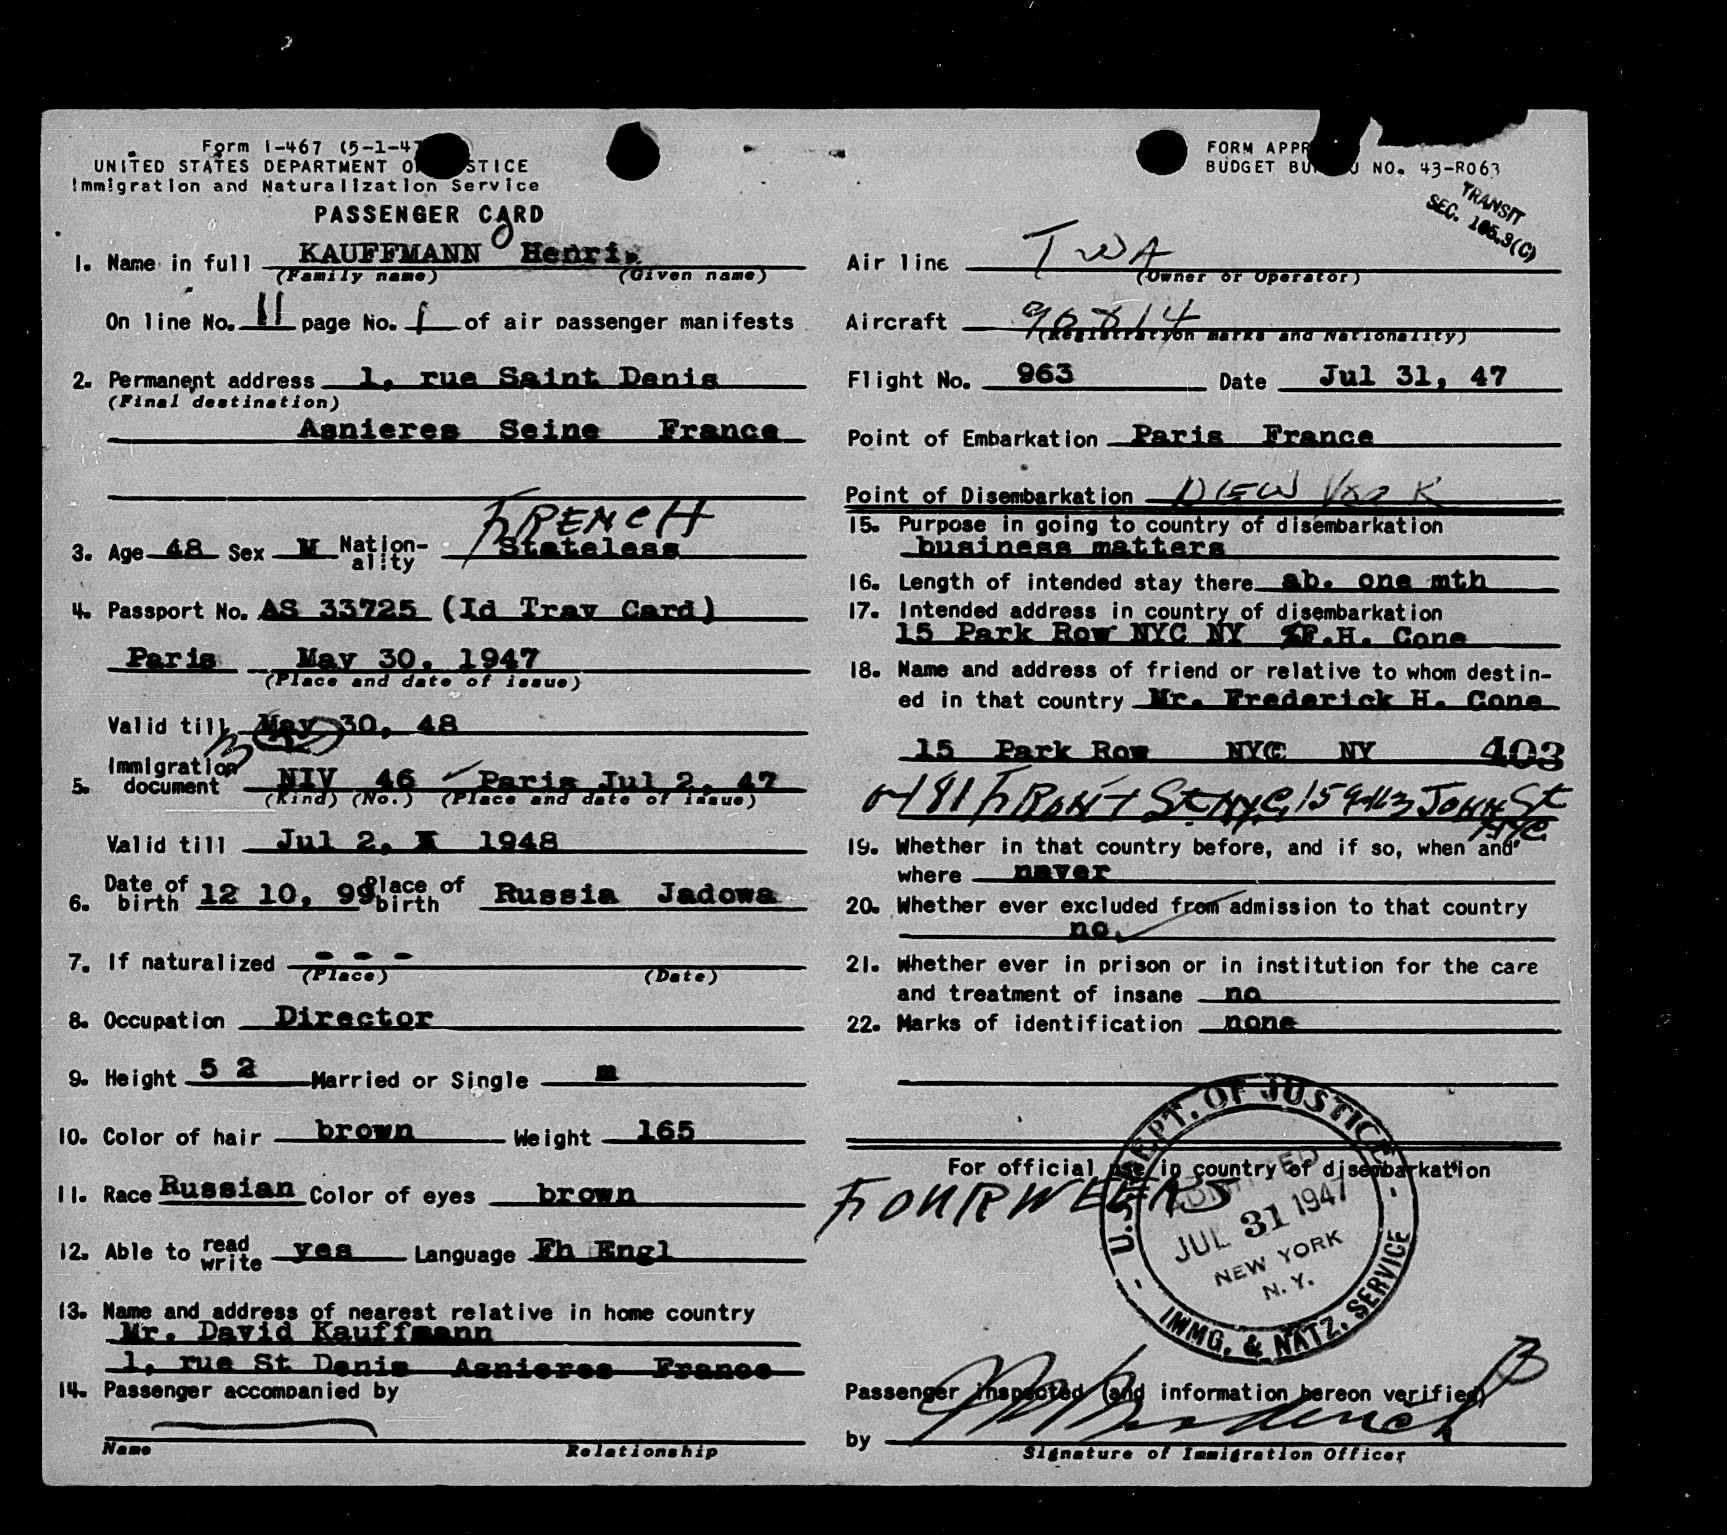 Form I-467 (5-1-47
UNITED STATES DEPARTMENT O STICE
Immigration and Naturalization Service
PASSENGER CARD
1. Name in full KAUFFMANN Henri
(Family name) (Given name)
On line No. 11 page No. 1 of air passenger manifests
2. Permanent address 1, rue Saint Denis
(Final destination)
Asnieres Seine France
FRENCH
3. Age 48 Sex M Nation-ality Stateless
4. Passport No. AS 33725 (Id Trav Card)
Paris May 30, 1947
(Place and date of issue)
Valid till May 30, 48
5. Immigration document NIV 46 Paris Jul 2, 47
(Kind) (No.) (Place and date of issue)
Valid till Jul 2, X 1948
6. Date of birth 12 10, 99 Place of birth Russia Jadowa
7. If naturalized - - -
(Place) (Date)
8. Occupation Director
9. Height 5 2 Married or Single m
10. Color of hair brown Weight 165
11. Race Russian Color of eyes brown
12. Able to read write yes Language Fh Engl
13. Name and address of nearest relative in home country
Mr. David Kauffmann
1, rue St Denis Asnieres France
14. Passenger accompanied by
Name Relationship
FORM APPR
BUDGET BU U NO. 43-R063
TRANSIT
SEC. 105.3(C)
Air line TWA
(Owner or Operator)
Aircraft 90814
(Registration marks and Nationality)
Flight No. 963 Date Jul 31, 47
Point of Embarkation Paris France
Point of Disembarkation NEW YORK
15. Purpose in going to country of disembarkation
business matters
16. Length of intended stay there ab. one mth
17. Intended address in country of disembarkation
15 Park Row NYC NY %F.H. Cone
18. Name and address of friend or relative to whom destin-
ed in that country Mr. Frederick H. Cone
15 Park Row NYC NY 403
181 FRONT St. NYC, 159-113 JOHN St
NYC
19. Whether in that country before, and if so, when and
where never
20. Whether ever excluded from admission to that country
no.
21. Whether ever in prison or in institution for the care
and treatment of insane no
22. Marks of identification none
For official use in country of disembarkation
FOUR WEEKS
U.S. DEPT. OF JUSTICE
ADMITTED
JUL 31 1947
NEW YORK
N. Y.
IMMG. & NATZ. SERVICE
Passenger inspected (and information hereon verified)
by
Signature of Immigration Officer